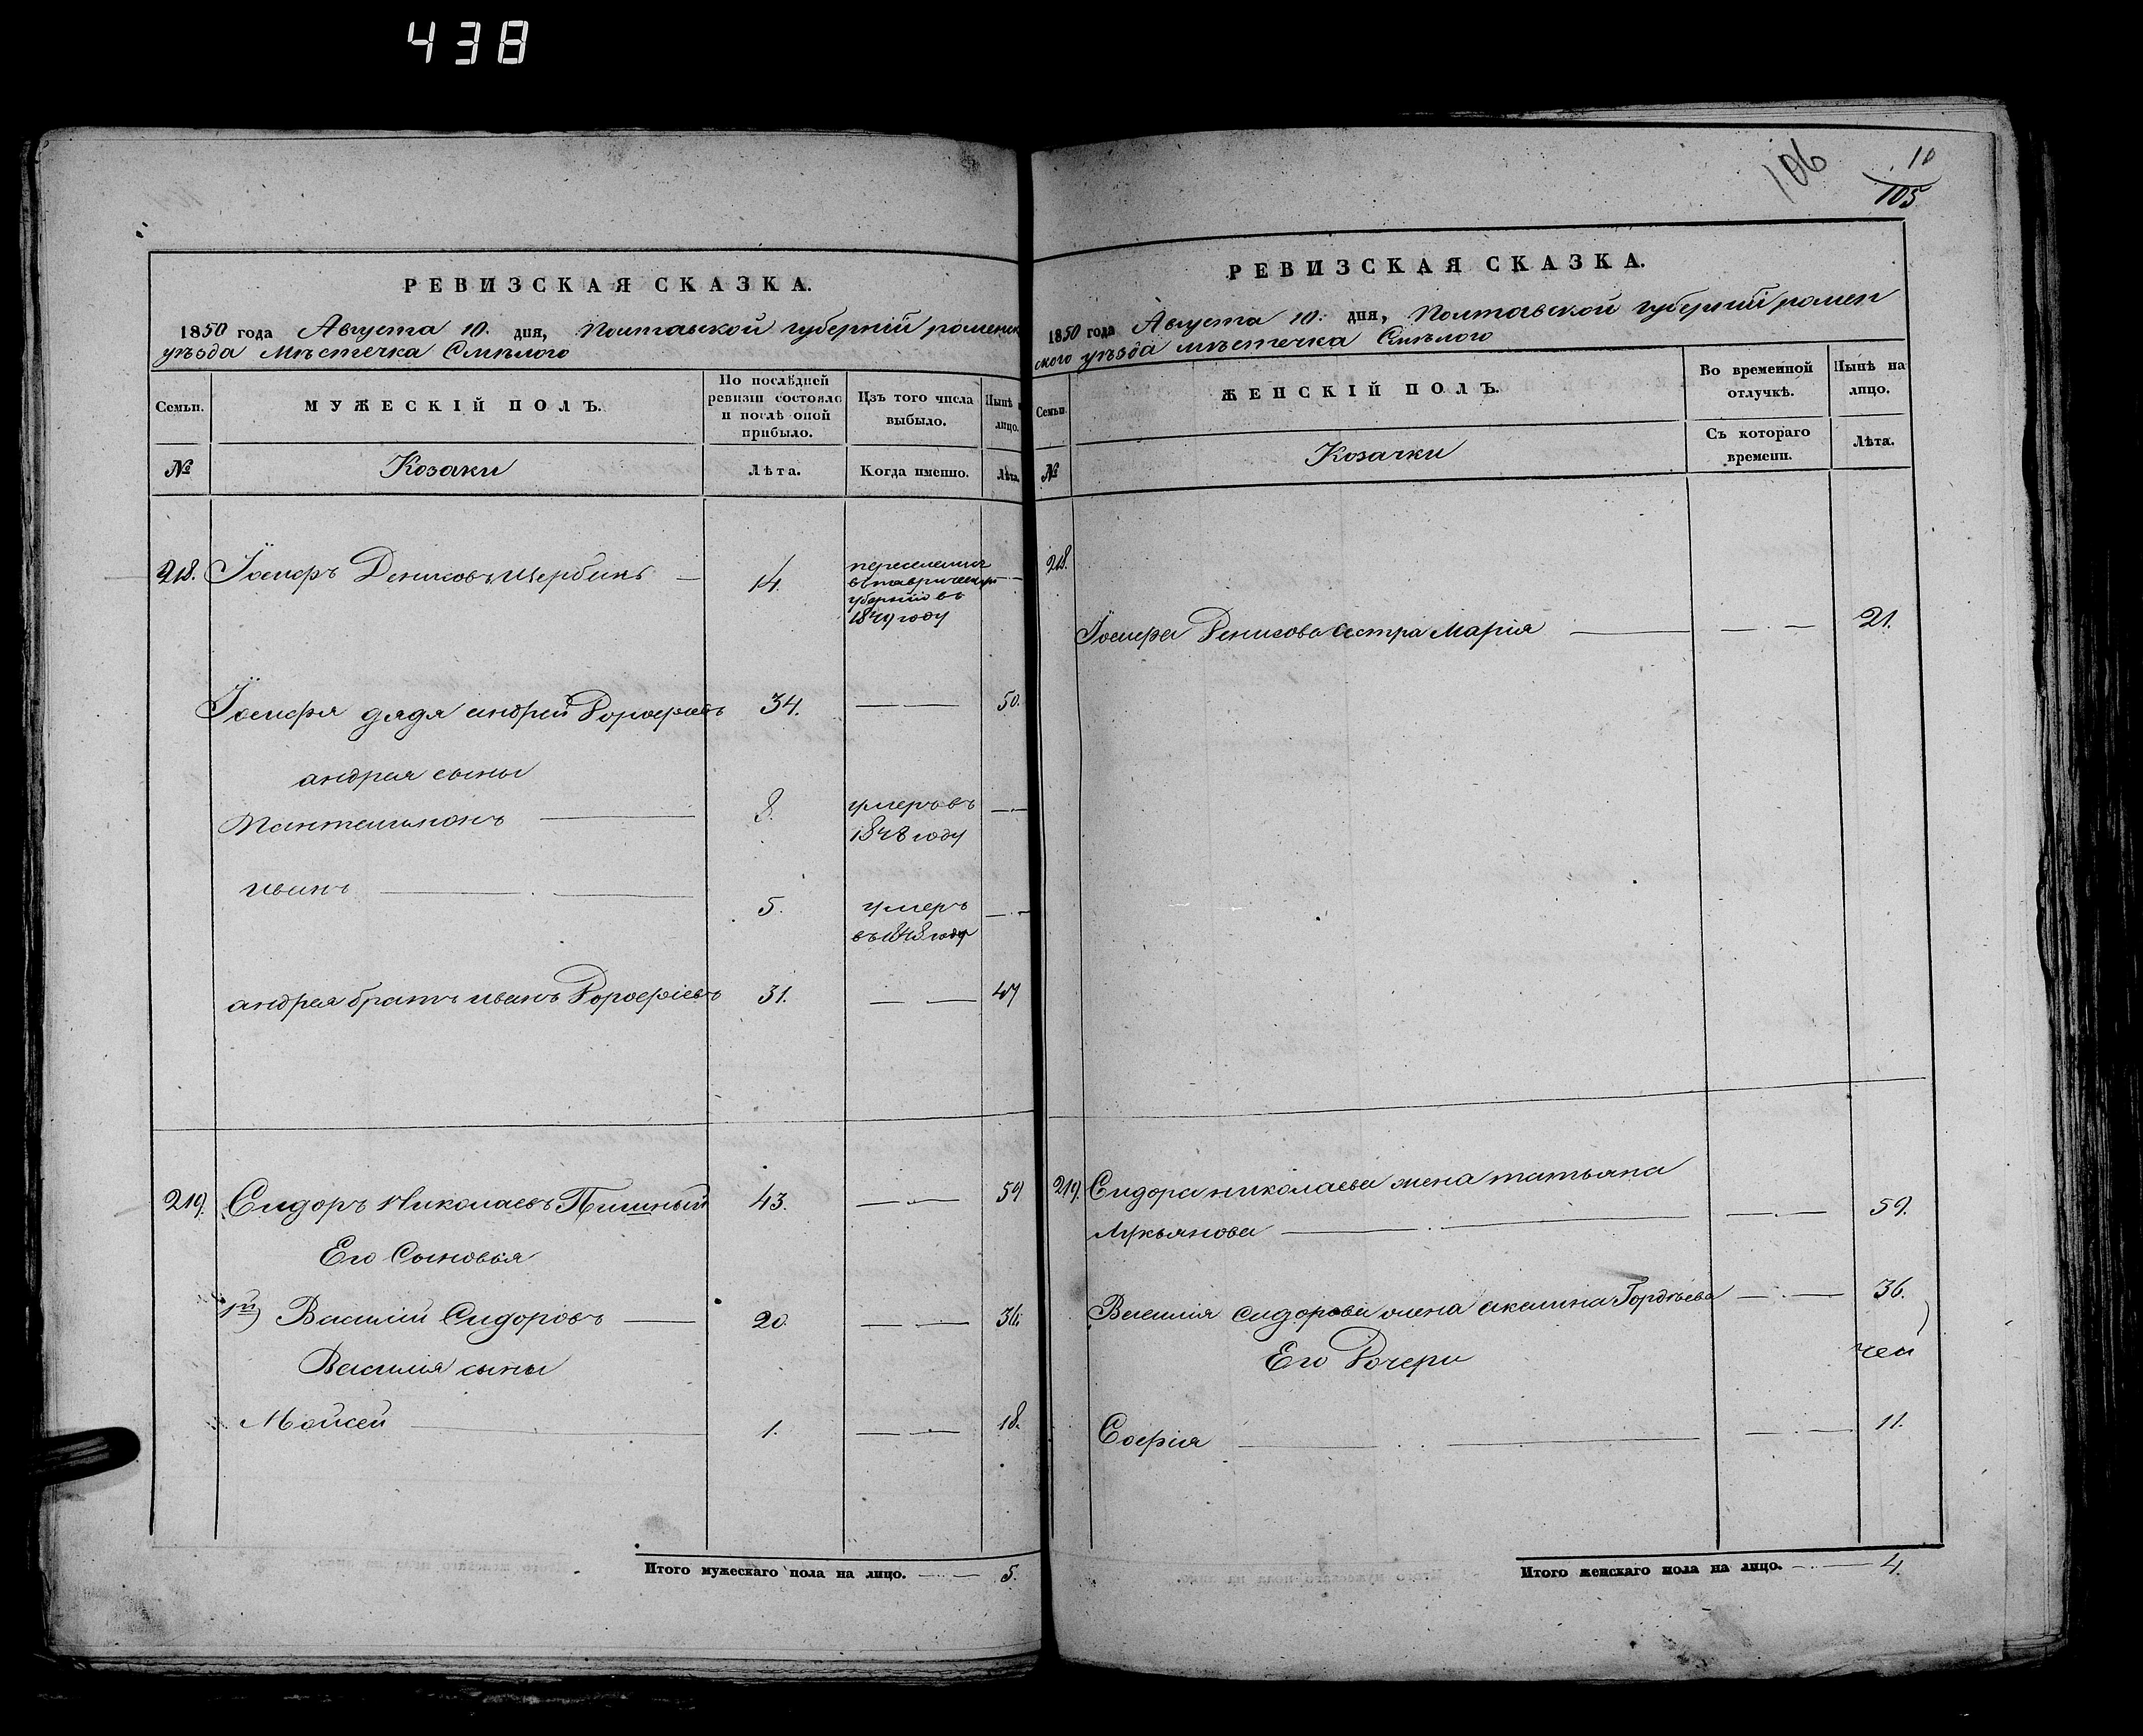 438
РЕВИЗСКАЯ СКАЗКА.
1850 года Августа 10. дня, Полтавской губернiй роменск
уѣзда мѣстечка Смѣлого
Семьи.
МУЖЕСКIЙ ПОЛЪ.
По послѣдней ревизiи состояло и послѣ оной прибыло.
Изъ того числа выбыло.
Нынѣ н лицо.
№
Козаки
Лѣта.
Когда именно.
Лѣта.
218. Iосифъ Денисовъ Щербина — 14.
переселился
в таврическую
губернiю въ
1849 году
Iосифа дядя андрей Дорофiевъ 34. — — 50.
андрея сыны
Пантелимонъ — 8. умеръ въ — · —
1848 году
иванъ — · — 5. умеръ — · —
въ 1848 году
андрея братъ иванъ Дорофiевъ 31. — — 47
219. Сидоръ Николаевъ Пышный 43. — · — 59
Его Сыновья
1й) Василiй Сидоровъ — 20. — · — 36.
Василiя сыны
Мойсей — 1. — · — 18.
Итого мужескаго пола на лицо. — · — 5.
106
10
105
РЕВИЗСКАЯ СКАЗКА.
1850 года Августа 10. дня, Полтавской губернiй ромен
ского уѣзда мѣстечка Смѣлого
Семьи.
ЖЕНСКIЙ ПОЛЪ.
Во временной отлучкѣ.
Нынѣ на лицо.
№
Козачки
Съ котораго времени.
Лѣта.
218.
Iосифа Денисова сестра Марiя — — · — 21.
219. Сидора николаева жена татьяна
Лукьянова — · — — · — 59.
Василiя сидорова жена акилина Гордѣева — · — 36.
Его Дочери
Софiя — · · — — · — 11.
Итого женскаго пола на лицо. — · — 4.